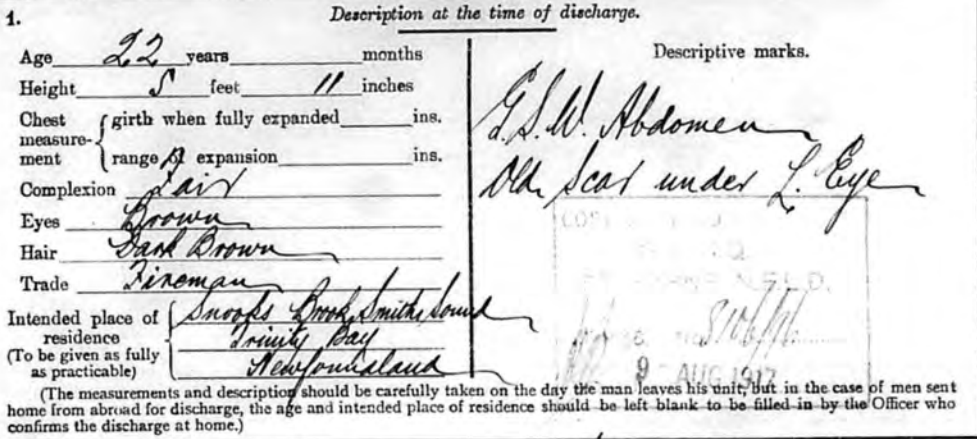 1.
Description at the time of discharge.
Age 22 years months
Height 5 feet 11 inches
Chest measure-ment { girth when fully expanded ins.
range of expansion ins.
Complexion Fair
Eyes Brown
Hair Dark Brown
Trade Fireman
Intended place of residence (To be given as fully as practicable) { Snooks Brook, Smiths Sound
Trinity Bay
Newfoundland
Descriptive marks.
G.S.W. Abdomen
Old Scar under L. Eye
N.F.L.D.
9 AUG 1917
(The measurements and description should be carefully taken on the day the man leaves his unit, but in the case of men sent
home from abroad for discharge, the age and intended place of residence should be left blank to be filled in by the Officer who
confirms the discharge at home.)